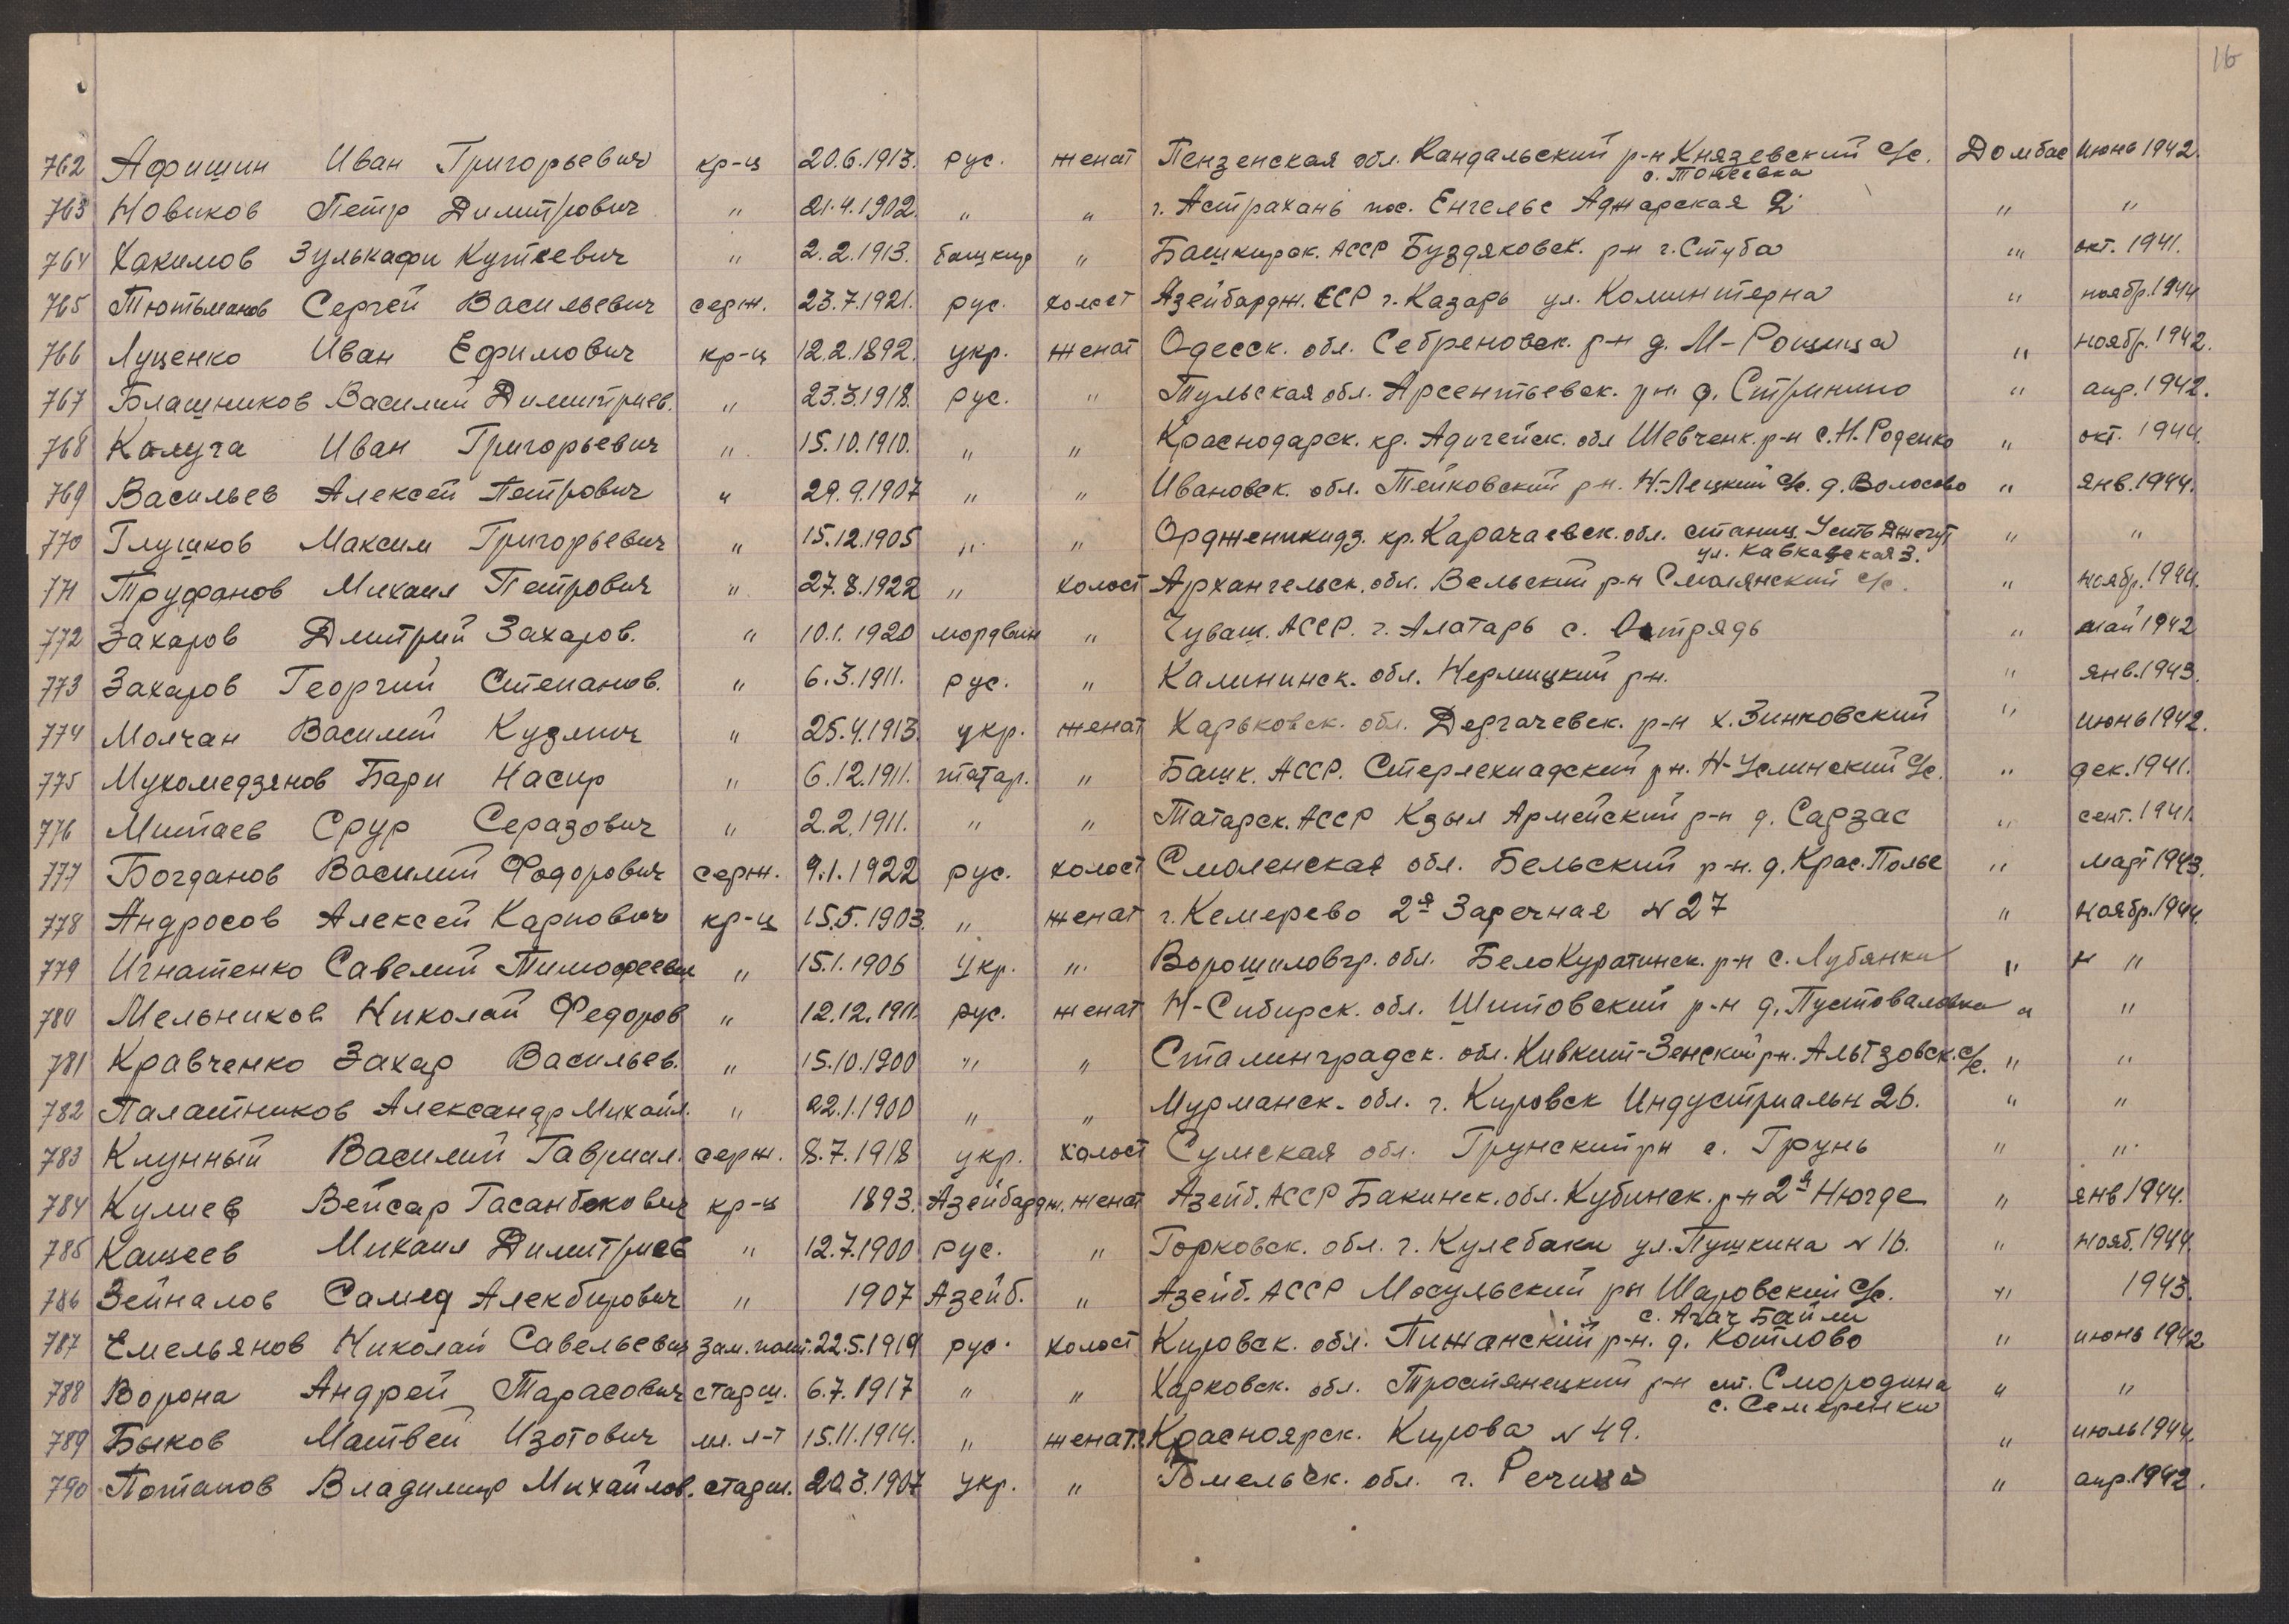 16
762 Афишин Иван Григорьевич кр-ц 20.6.1913. рус. женат Пензенская обл. Кандальский р-н Князевский с/с. Домбас июнь 1942.
с. Тонеевка
763 Новиков Петр Димитрович " 21.4.1902. " " г. Астрахань пос. Енгельс Аджарская 2 " "
764 Хакимов Зулькафи Кутеевич " 2.2.1913. башкир " Башкирск. АССР Буздяковск. р-н г. Стуба " окт. 1941.
765 Тютьманов Сергей Васильевич серж. 23.7.1921. рус. холост Азейбардж. ССР г. Казарь ул. Коминтерна " ноябр. 1944
766 Луценко Иван Ефимович кр-ц 12.2.1892. укр. женат Одесск. обл. Себреновск. р-н д. М-Рощица " ноябр. 1942.
767 Блашников Василий Димитриев. " 23.3.1918. рус. " Тульская обл. Арсентьевск. рн. д. Стринино " апр. 1942.
768 Калуга Иван Григорьевич " 15.10.1910. " " Краснодарск. кр. Адигейск. обл Шевченк. р-н с. Н. Роденко " окт. 1944.
769 Васильев Алексей Петрович " 29.9.1907 " " Ивановск. обл. Тейковский р-н. Н.-Лецкий с/с. д. Волосово " янв. 1944.
770 Глушков Максим Григорьевич " 15.12.1905 " " Ордженикидз. кр. Карачаевск. обл. станиц. Усть Джегут " "
ул. Кавказская 3.
771 Труфанов Михаил Петрович " 27.8.1922 " холост Архангельск. обл. Вельский р-н Смолянский с/с. " ноябр. 1944.
772 Захаров Дмитрий Захаров. " 10.1.1920 мордвин " Чуваш. АССР. г. Алатарь с. " май 1942
773 Захаров Георгий Степанов. " 6.3.1911. рус. " Калининск. обл. Нерлицкий рн. " янв. 1943.
774 Молчан Василий Кузмич " 25.4.1913. укр. женат Харьковск. обл. Дергачевск. р-н х. Зинковский " июнь 1942.
775 Мухомедзянов Бари Насир " 6.12.1911. татар. " Башк. АССР. Стерлехиадский рн. Н-Услинский с/с. " дек. 1941.
776 Митаев Срур Серазович " 2.2.1911. " " Татарск. АССР Кзыл Армейский р-н д. Сарзас " сент. 1941.
777 Богданов Василий Фодорович серж. 9.1.1922 рус. холост Смоленская обл. Бельский р-н. д. Крас. Полье " март 1943.
778 Андросов Алексей Карпович кр-ц 15.5.1903. " женат г. Кемерево 2я Заречная N 27 " ноябр. 1944.
779 Игнатенко Савелий Тимофеевич " 15.1.1906 укр. " Ворошиловгр. обл. БелоКуратинск. р-н с. Лубянки " " "
780 Мельников Николай Федоров " 12.12.1911. рус. женат Н-Сибирск. обл. Шитовский р-н д. Пустоваловка " "
781 Кравченко Захар Васильев. " 15.10.1900 " " Сталинградск. обл. Кивкит-Зенский рн. Альтзовск. с/с. " "
782 Палатников Александр Михайл. " 22.1.1900 " " Мурманск. обл. г. Кировск Индустриальн 26. " "
783 Клунный Василий Гавриил. серж. 8.7.1918 укр. холост Сумская обл. Грунский рн с. Грунь " "
784 Кулиев Вейсар Гасанбекович кр-ц 1893. Азейбардж. женат Азейб. АССР Бакинск. обл. Кубинск. р-н 2я Нюгде " янв 1944.
785 Кащеев Михаил Димитриев " 12.7.1900 рус. " Горковск. обл. г. Кулебаки ул. Пушкина N 16. " нояб. 1944.
786 Зейналов Самед Алекбирович " 1907 Азейб. " Азейб. АССР Масульский рн Шаровский с/с. " 1943.
с. Агач Байли
787 Емельянов Николай Савельевич зам. полит. 22.5.1919 рус. холост Кировск. обл. Пижанский р-н. д. Котлово " июнь 1942
788 Ворона Андрей Тарасович старш. 6.7.1917 " " Харковск. обл. Тростянецкий р-н ст. Смородина " "
с. Семеренки
789 Быков Матвей Изотович мл. л-т 15.11.1914. " женат. г. Красноярск. Кирова N 49. " июль 1944.
790 Потапов Владимир Михайлов. старш. 20.3.1907 укр. " Гомельск. обл. г. Речица " апр. 1942.